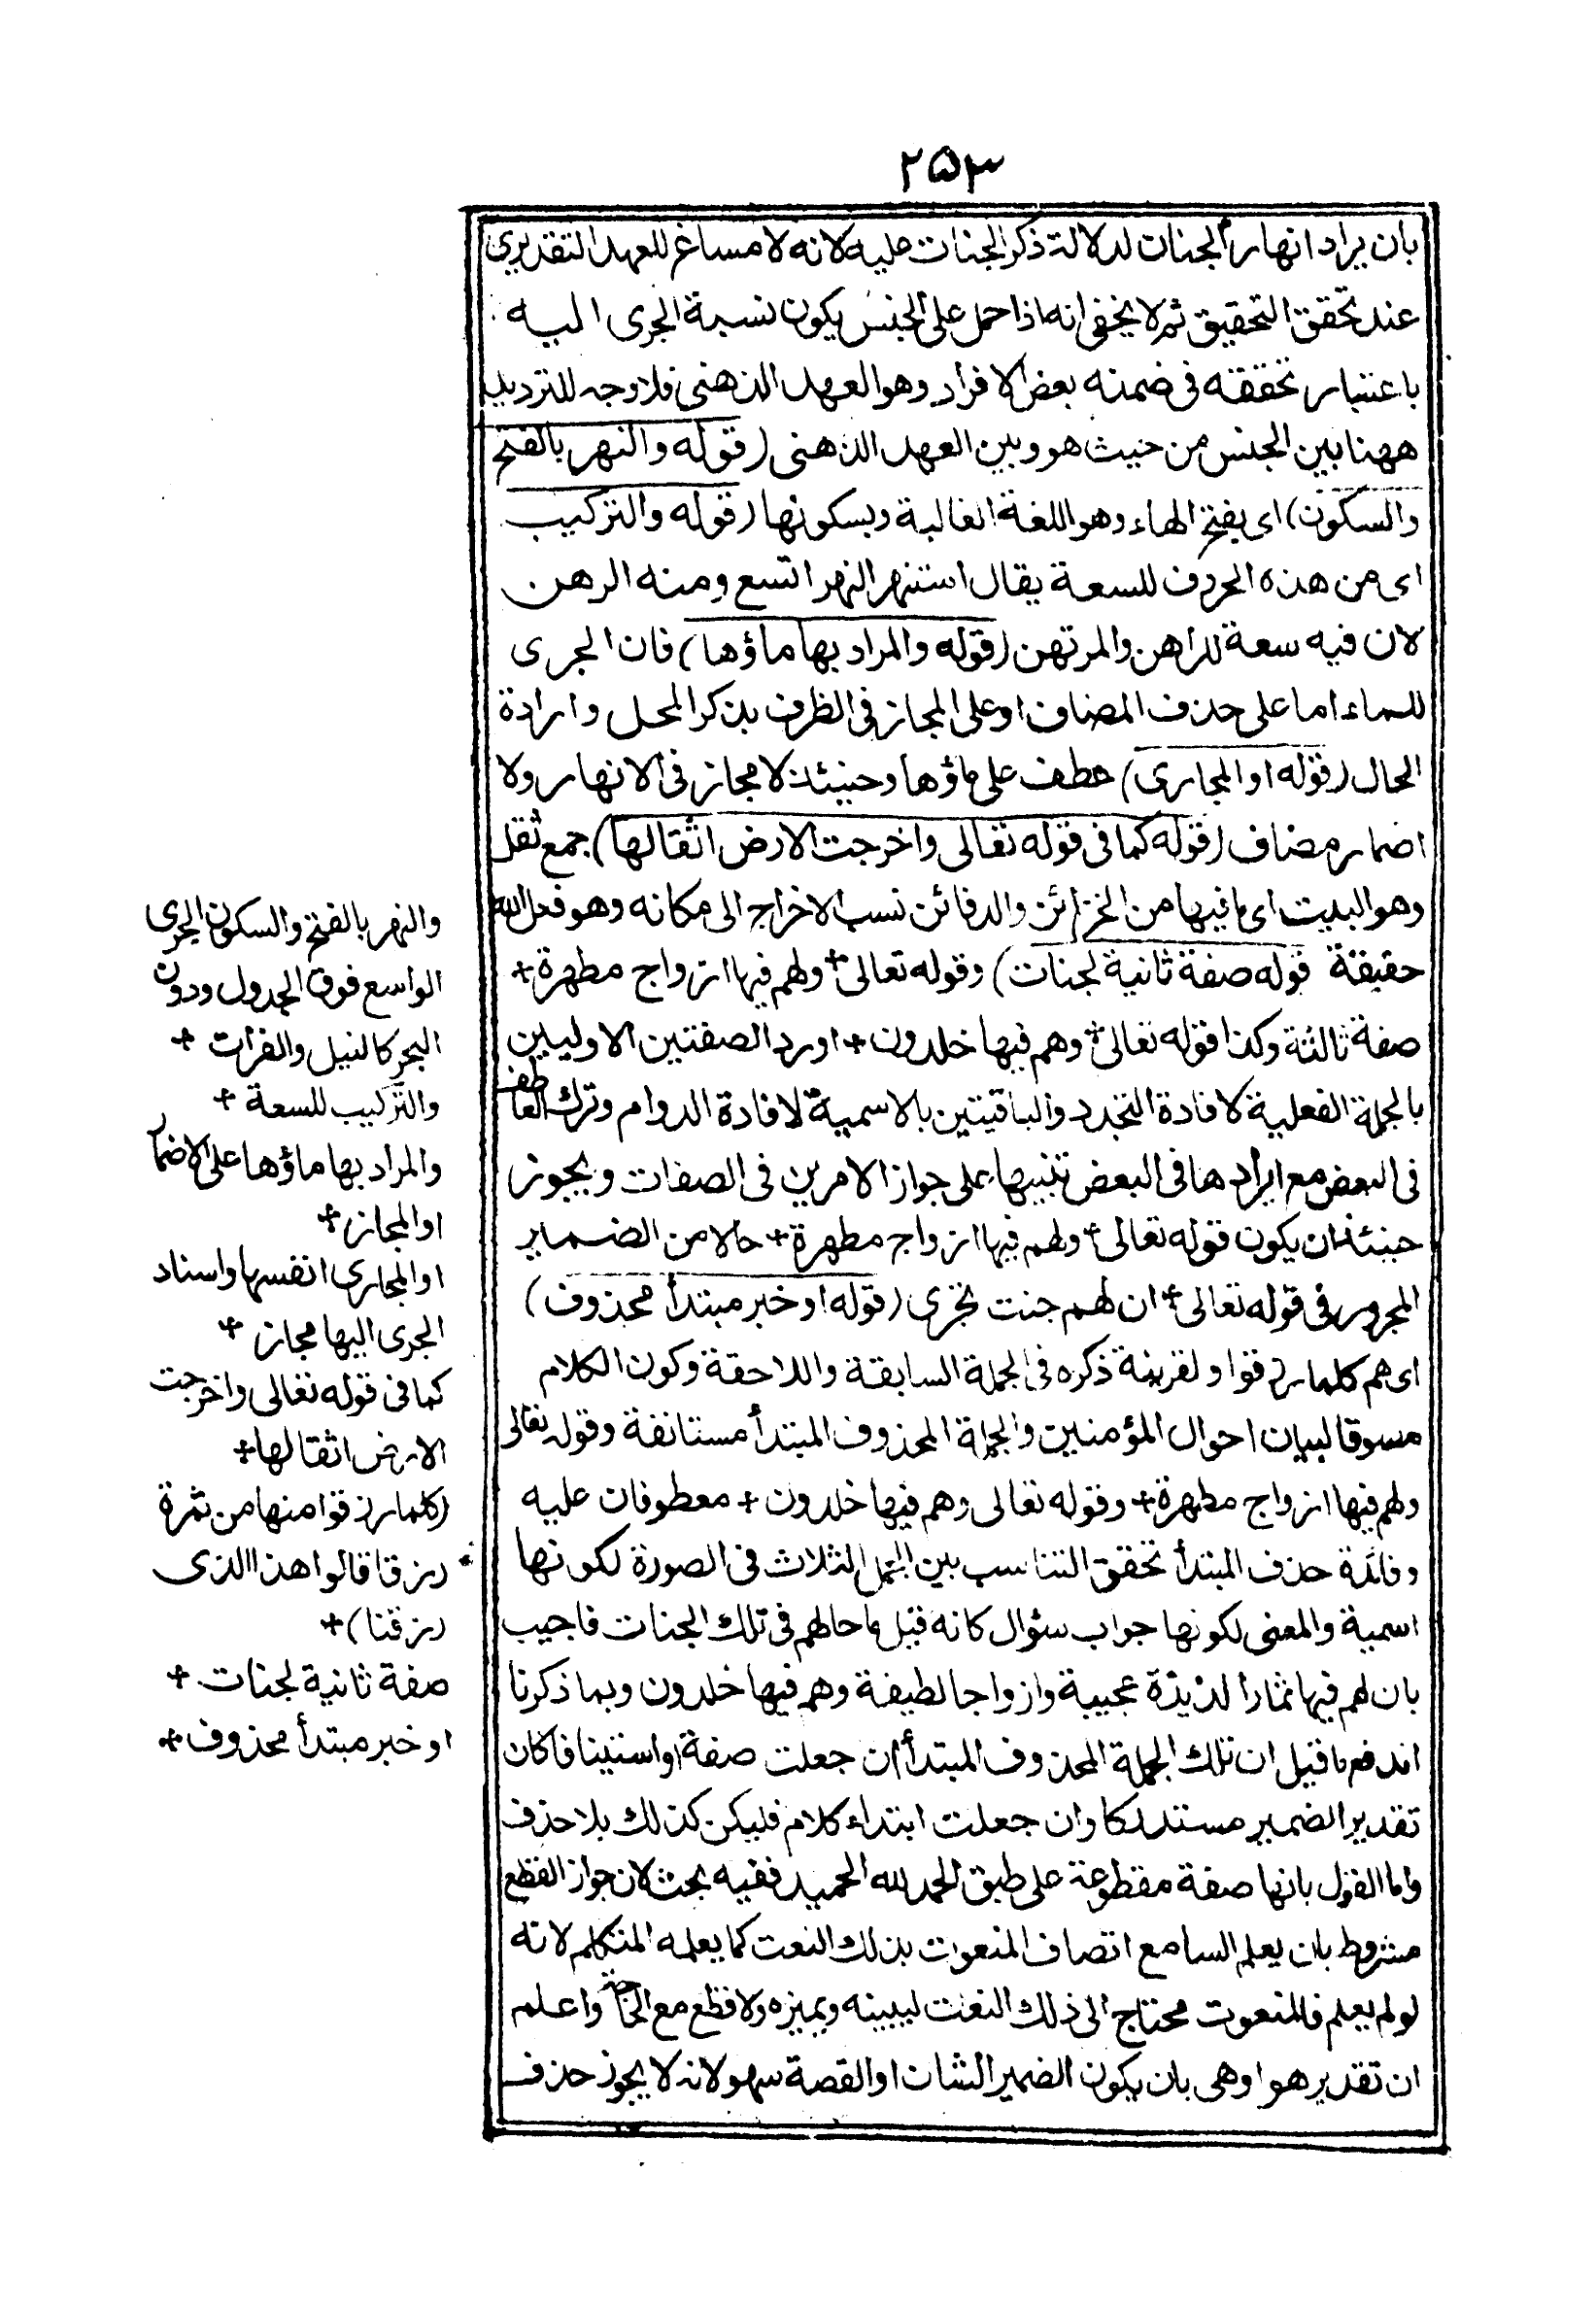 ٢٥٣
بان يراد انهار الجنات لدلالة ذكر الجنات عليه لانه لا مساغ للعهد التقديري
عند تحقق التحقيق ثم لا يخفى انه اذا حمل على الجنس يكون نسبة الجرى اليه
باعتبار تحققه فى ضمنه بعض الافراد وهو العهد الذهنى فلا وجه للترديد
ههنا بين الجنس من حيث هو وبين العهد الذهنى (قوله والنهر بالفتح
والسكون) اى بفتح الهاء وهو اللغة الغالبة وبسكونها (قوله والتركيب
اى من هذه الحروف للسعة يقال استنهر النهر اتسع ومنه الرهن
لان فيه سعة للراهن والمرتهن (قوله والمراد بها ماؤها) فان الجرى
للماء اما على حذف المضاف او على المجاز فى الظرف بذكر المحل وارادة
الحال (قوله او المجارى) عطف على ماؤها وحينئذ لا مجاز فى الانهار ولا
اضمار مضاف (قوله كما فى قوله تعالى واخرجت الارض اثقالها) جمع ثقل
وهو البيت اى ما فيها من الخزائن والدفائن نسب الاخراج الى مكانه وهو فعل الله
حقيقة قوله صفة ثانية لجنات) وقوله تعالى + ولهم فيها ازواج مطهرة +
صفة ثالثة وكذا قوله تعالى + وهم فيها خلدون + اورد الصفتين الاوليين
بالجملة الفعلية لافادة التجدد والباقيتين بالاسمية لافادة الدوام وترك العاطف
فى البعض مع ايرادها فى البعض تنبيها على جواز الامرين فى الصفات ويجوز
حينئذ ان يكون قوله تعالى + ولهم فيها ازواج مطهرة + حالا من الضمير
المجرور فى قوله تعالى + ان لهم جنت تجرى (قوله او خبر مبتدأ محذوف)
اى هم كلما رزقوا ولقرينة ذكره فى الجملة السابقة واللاحقة وكون الكلام
مسوقا لبيان احوال المؤمنين والجملة المحذوف المبتدأ مستانفة وقوله تعالى
ولهم فيها ازواج مطهرة + وقوله تعالى وهم فيها خلدون + معطوفان عليه
وفائدة حذف المبتدأ تحقق التناسب بين الجمل الثلاث فى الصورة لكونها
اسمية والمعنى لكونها جواب سؤال كانه قيل ما حالهم فى تلك الجنات فاجيب
بان لهم فيها ثمارا لذيذة عجيبة وازواجا لطيفة وهم فيها خلدون وبما ذكرنا
اندفع ما قيل ان تلك الجملة المحذوف المبتدأ ان جعلت صفة او استينافا كان
تقدير الضمير مستدركا وان جعلت ابتداء كلام فليكن كذلك بلا حذف
واما القول بانها صفة مقطوعة على طبق الحمد لله الحميد ففيه بحث لان جواز القطع
مشروط بان يعلم السامع اتصاف المنعوت بذلك النعت كما يعلمه المتكلم لانه
لو لم يعلم فالمنعوت محتاج الى ذلك النعت ليبينه ويميزه ولا قطع مع الحاجة واعلم
ان تقدير هو او هى بان يكون الضمير الشان او القصة سهو لانه لا يجوز حذف
والنهر بالفتح والسكون المجرى
الواسع فوق الجدول ودون
البحر كالنيل والفرات +
والتركيب للسعة +
والمراد بها ماؤها على الاضما
او المجاز +
او المجارى انفسها واسناد
الجرى اليها مجاز +
كما فى قوله تعالى واخرجت
الارض اثقالها +
(كلما رزقوا منها من ثمرة
رزقا قالوا هذا الذى
رزقنا) +
صفة ثانية لجنات +
او خبر مبتدأ محذوف +